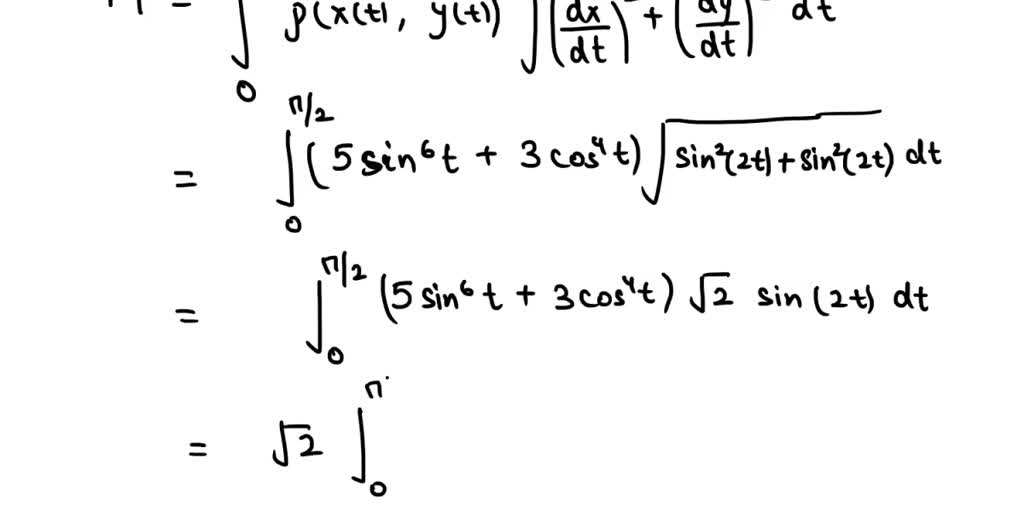 = ∫₀ ρ(x(t), y(t)) √(dx/dt) + (dy/dt) dt
= ∫₀^(π/2) (5 sin⁶t + 3 cos⁴t) √(sin²(2t) + sin²(2t)) dt
= ∫₀^(π/2) (5 sin⁶t + 3 cos⁴t) √2 sin(2t) dt
= √2 ∫₀^π